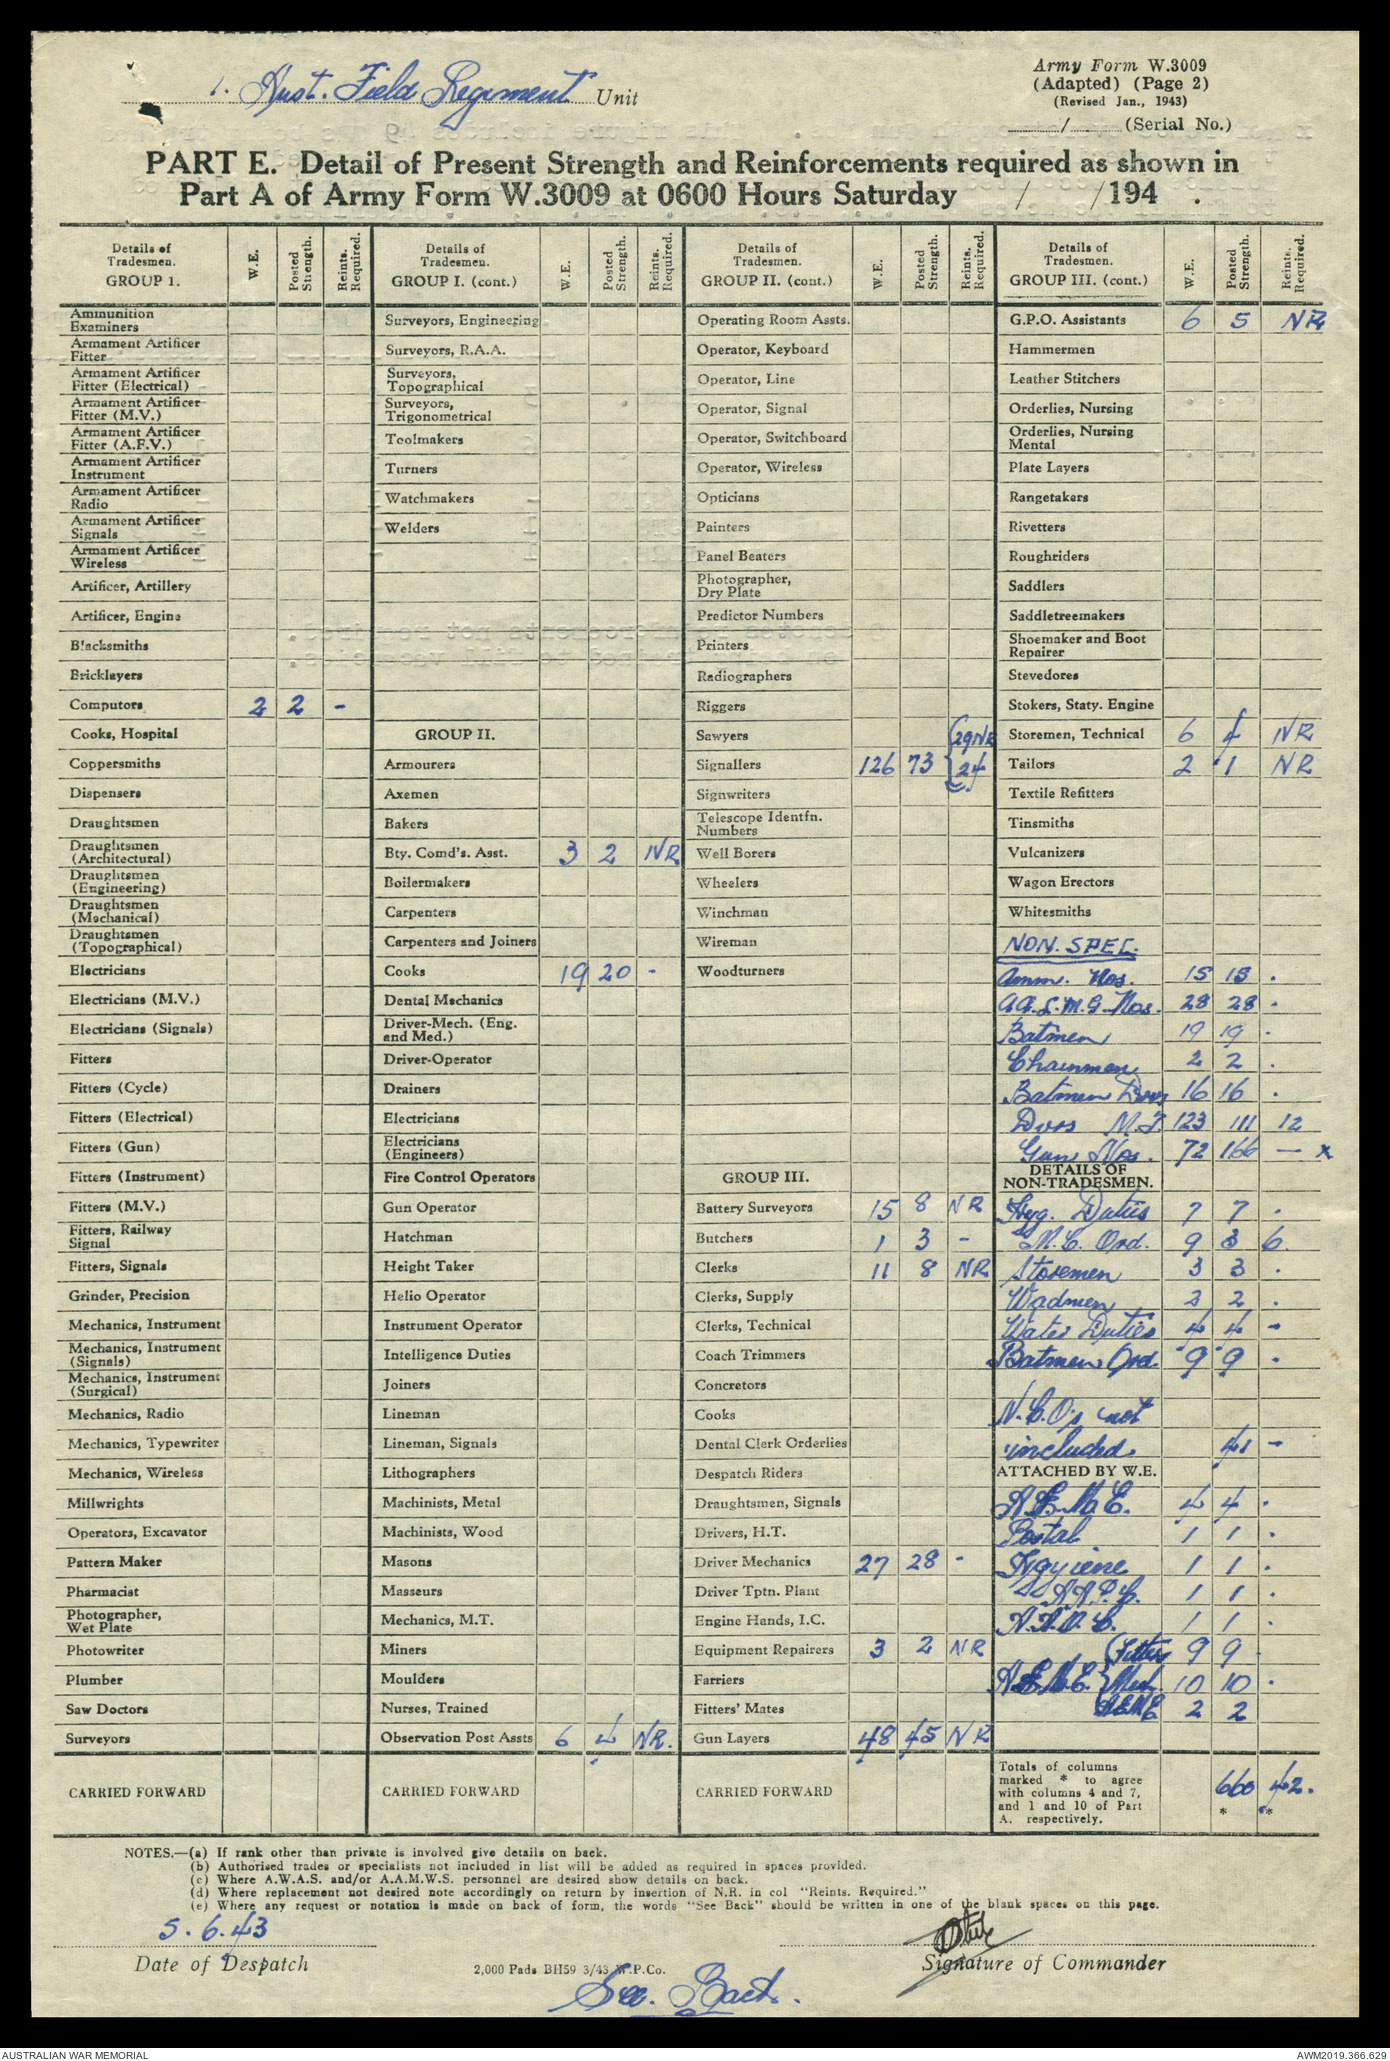 1. Aust. Field Regiment Unit
Army Form W.3009
(Adapted) (Page 2)
(Revised Jan., 1943)
/ (Serial No.)
PART E. Detail of Present Strength and Reinforcements required as shown in
Part A of Army Form W.3009 at 0600 Hours Saturday / /194 .
Details of Tradesmen. GROUP 1. W.E. Posted Strength. Reints. Required.
Ammunition Examiners
Armament Artificer Fitter
Armament Artificer Fitter (Electrical)
Armament Artificer Fitter (M.V.)
Armament Artificer Fitter (A.F.V.)
Armament Artificer Instrument
Armament Artificer Radio
Armament Artificer Signals
Armament Artificer Wireless
Artificer, Artillery
Artificer, Engine
Blacksmiths
Bricklayers
Computors 2 2 -
Cooks, Hospital
Coppersmiths
Dispensers
Draughtsmen
Draughtsmen (Architectural)
Draughtsmen (Engineering)
Draughtsmen (Mechanical)
Draughtsmen (Topographical)
Electricians
Electricians (M.V.)
Electricians (Signals)
Fitters
Fitters (Cycle)
Fitters (Electrical)
Fitters (Gun)
Fitters (Instrument)
Fitters (M.V.)
Fitters, Railway Signal
Fitters, Signals
Grinder, Precision
Mechanics, Instrument
Mechanics, Instrument (Signals)
Mechanics, Instrument (Surgical)
Mechanics, Radio
Mechanics, Typewriter
Mechanics, Wireless
Millwrights
Operators, Excavator
Pattern Maker
Pharmacist
Photographer, Wet Plate
Photowriter
Plumber
Saw Doctors
Surveyors
CARRIED FORWARD
Details of Tradesmen. GROUP I. (cont.) W.E. Posted Strength. Reints. Required.
Surveyors, Engineering
Surveyors, R.A.A.
Surveyors, Topographical
Surveyors, Trigonometrical
Toolmakers
Turners
Watchmakers
Welders
GROUP II.
Armourers
Axemen
Bakers
Bty. Comd's. Asst. 3 2 NR
Boilermakers
Carpenters
Carpenters and Joiners
Cooks 19 20 -
Dental Mechanics
Driver-Mech. (Eng. and Med.)
Driver-Operator
Drainers
Electricians
Electricians (Engineers)
Fire Control Operators
Gun Operator
Hatchman
Height Taker
Helio Operator
Instrument Operator
Intelligence Duties
Joiners
Lineman
Lineman, Signals
Lithographers
Machinists, Metal
Machinists, Wood
Masons
Masseurs
Mechanics, M.T.
Miners
Moulders
Nurses, Trained
Observation Post Assts 6 4 NR.
CARRIED FORWARD
Details of Tradesmen. GROUP II. (cont.) W.E. Posted Strength. Reints. Required.
Operating Room Assts.
Operator, Keyboard
Operator, Line
Operator, Signal
Operator, Switchboard
Operator, Wireless
Opticians
Painters
Panel Beaters
Photographer, Dry Plate
Predictor Numbers
Printers
Radiographers
Riggers
Sawyers
Signallers 126 73 { 29 NR 24
Signwriters
Telescope Identfn. Numbers
Well Borers
Wheelers
Winchman
Wireman
Woodturners
GROUP III.
Battery Surveyors 15 8 NR
Butchers 1 3 -
Clerks 11 8 NR
Clerks, Supply
Clerks, Technical
Coach Trimmers
Concretors
Cooks
Dental Clerk Orderlies
Despatch Riders
Draughtsmen, Signals
Drivers, H.T.
Driver Mechanics 27 28 -
Driver Tptn. Plant
Engine Hands, I.C.
Equipment Repairers 3 2 NR
Farriers
Fitters' Mates
Gun Layers 48 45 NR
CARRIED FORWARD
Details of Tradesmen. GROUP III. (cont.) W.E. Posted Strength. Reints. Required.
G.P.O. Assistants 6 5 NR
Hammermen
Leather Stitchers
Orderlies, Nursing
Orderlies, Nursing Mental
Plate Layers
Rangetakers
Rivetters
Roughriders
Saddlers
Saddletreemakers
Shoemaker and Boot Repairer
Stevedores
Stokers, Staty. Engine
Storemen, Technical 6 4 NR
Tailors 2 1 NR
Textile Refitters
Tinsmiths
Vulcanizers
Wagon Erectors
Whitesmiths
NON. SPEC.
Amm. Nos. 15 15 .
AA. L.M.G. Nos. 28 28 .
Batmen 19 19 .
Chainmen 2 2 .
Batmen Dvrs 16 16 .
Dvrs M.T. 123 111 12
Gun Nos. 72 166 — x
DETAILS OF NON-TRADESMEN.
Hyg. Duties 7 7 .
M.C. Ord. 9 3 6.
Storemen 3 3 .
Wadmen 2 2 .
Water Duties 4 4 -
Batmen Ord. 9 9 .
N.C.O's not
included. 41 -
ATTACHED BY W.E.
A.E.M.E. 4 4 .
Postal 1 1 .
Hgyiene 1 1 .
A.A.P.C. 1 1 .
A.A.O.C. 1 1 .
(Fitters 9 9
A.E.M.E. { Mech. 10 10 .
AEME 2 2
Totals of columns marked * to agree with columns 4 and 7, and 1 and 10 of Part A. respectively. 660 * 42. *
NOTES.—(a) If rank other than private is involved give details on back.
(b) Authorised trades or specialists not included in list will be added as required in spaces provided.
(c) Where A.W.A.S. and/or A.A.M.W.S. personnel are desired show details on back.
(d) Where replacement not desired note accordingly on return by insertion of N.R. in col "Reints. Required."
(e) Where any request or notation is made on back of form, the words "See Back" should be written in one of the blank spaces on this page.
5.6.43
Date of Despatch
2,000 Pads BH59 3/43 W.P.Co.
Signature of Commander
See. Back.
AUSTRALIAN WAR MEMORIAL
AWM2019.366.629